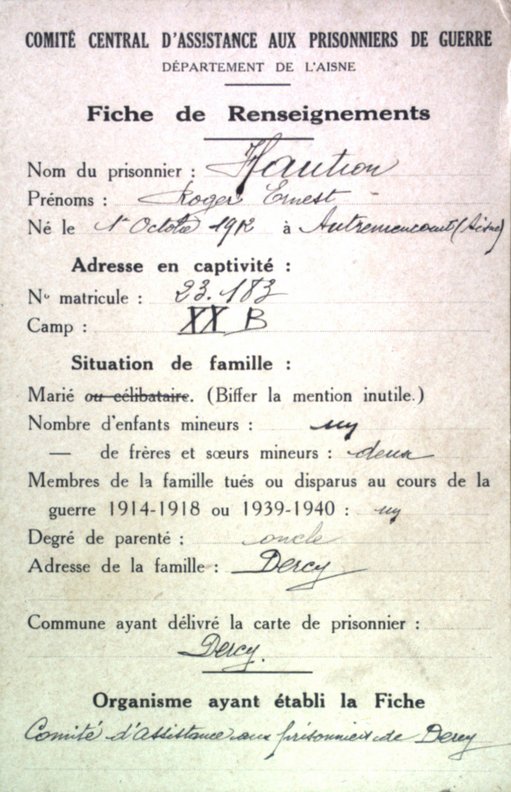 COMITÉ CENTRAL D'ASSISTANCE AUX PRISONNIERS DE GUERRE
DÉPARTEMENT DE L'AISNE
Fiche de Renseignements
Nom du prisonnier : Haution
Prénoms : Roger Ernest
Né le 1r Octobre 1912 à Autremencourt (Aisne)
Adresse en captivité :
No matricule : 23.183
Camp : XX B
Situation de famille :
Marié ou célibataire. (Biffer la mention inutile.)
Nombre d'enfants mineurs : un
— de frères et sœurs mineurs : deux
Membres de la famille tués ou disparus au cours de la
guerre 1914-1918 ou 1939-1940 : un
Degré de parenté : oncle
Adresse de la famille : Dercy
Commune ayant délivré la carte de prisonnier :
Dercy.
Organisme ayant établi la Fiche
Comité d'assistance aux prisonniers de Dercy